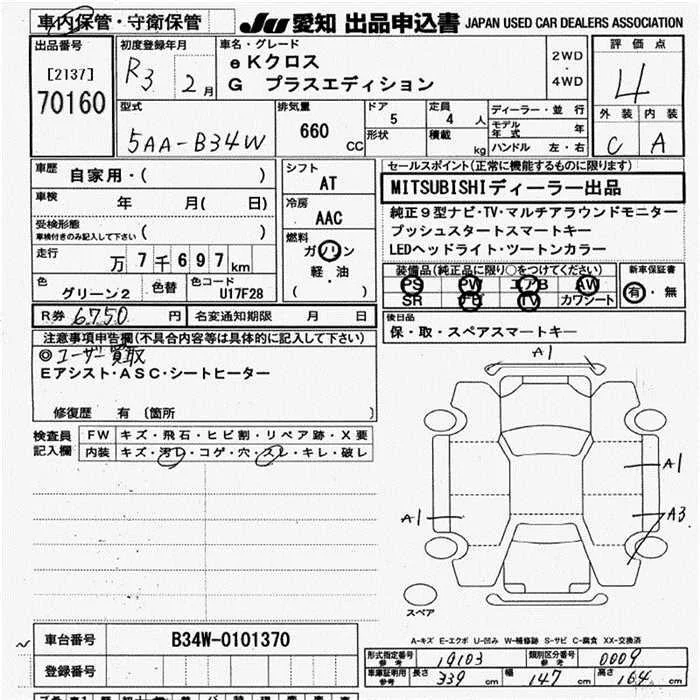 車内保管・守衛保管
Ju 愛知 出品申込書 JAPAN USED CAR DEALERS ASSOCIATION
出品番号
[2137]
70160
初度登録年月
R3 2月
車名・グレード
eKクロス
G プラスエディション
2WD
・
4WD
評価点
4
外装 内装
C A
型式
5AA-B34W
排気量
660 CC
ドア
5
形状
定員
4 人
積載
kg
ディーラー・並行
モデル年式 年
ハンドル 左・右
車歴
自家用・( )
車検
年 月( 日)
受検形態
車検付きのみ記入して下さい ( )
走行
万7千697km
色
グリーン2
色替
色コード
U17F28
シフト
AT
冷房
AAC
燃料
ガソリン
軽・油
( )
セールスポイント(正常に機能するものに限ります)
MITSUBISHIディーラー出品
純正9型ナビ・TV・マルチアラウンドモニター
プッシュスタートスマートキー
LEDヘッドライト・ツートンカラー
装備品(純正品に限り○をつけてください)
PS PW エアB AW
SR ナビ TV カワシート
新車保証書
有・無
R券 6,750 円
名変通知期限 月 日
後日品
保・取・スペアスマートキー
注意事項申告欄(不具合内容等は具体的に記入して下さい)
◎ユーザー買取
Eアシスト・ASC・シートヒーター
修復歴 有 〔箇所 〕
検査員記入欄
FW キズ・飛石・ヒビ割・リペア跡・X要
内装 キズ・汚レ・コゲ・穴・スレ・キレ・破レ
A1
A1
A1
A3
スペア
A-キズ E-エクボ U-凹み W-補修跡 S-サビ C-腐食 XX-交換済
車台番号 B34W-0101370
登録番号
形式指定番号 参考 19103
類別区分番号 参考 0009
車庫証明用 参考 長さ 339 cm 幅 147 cm 高さ 164 cm